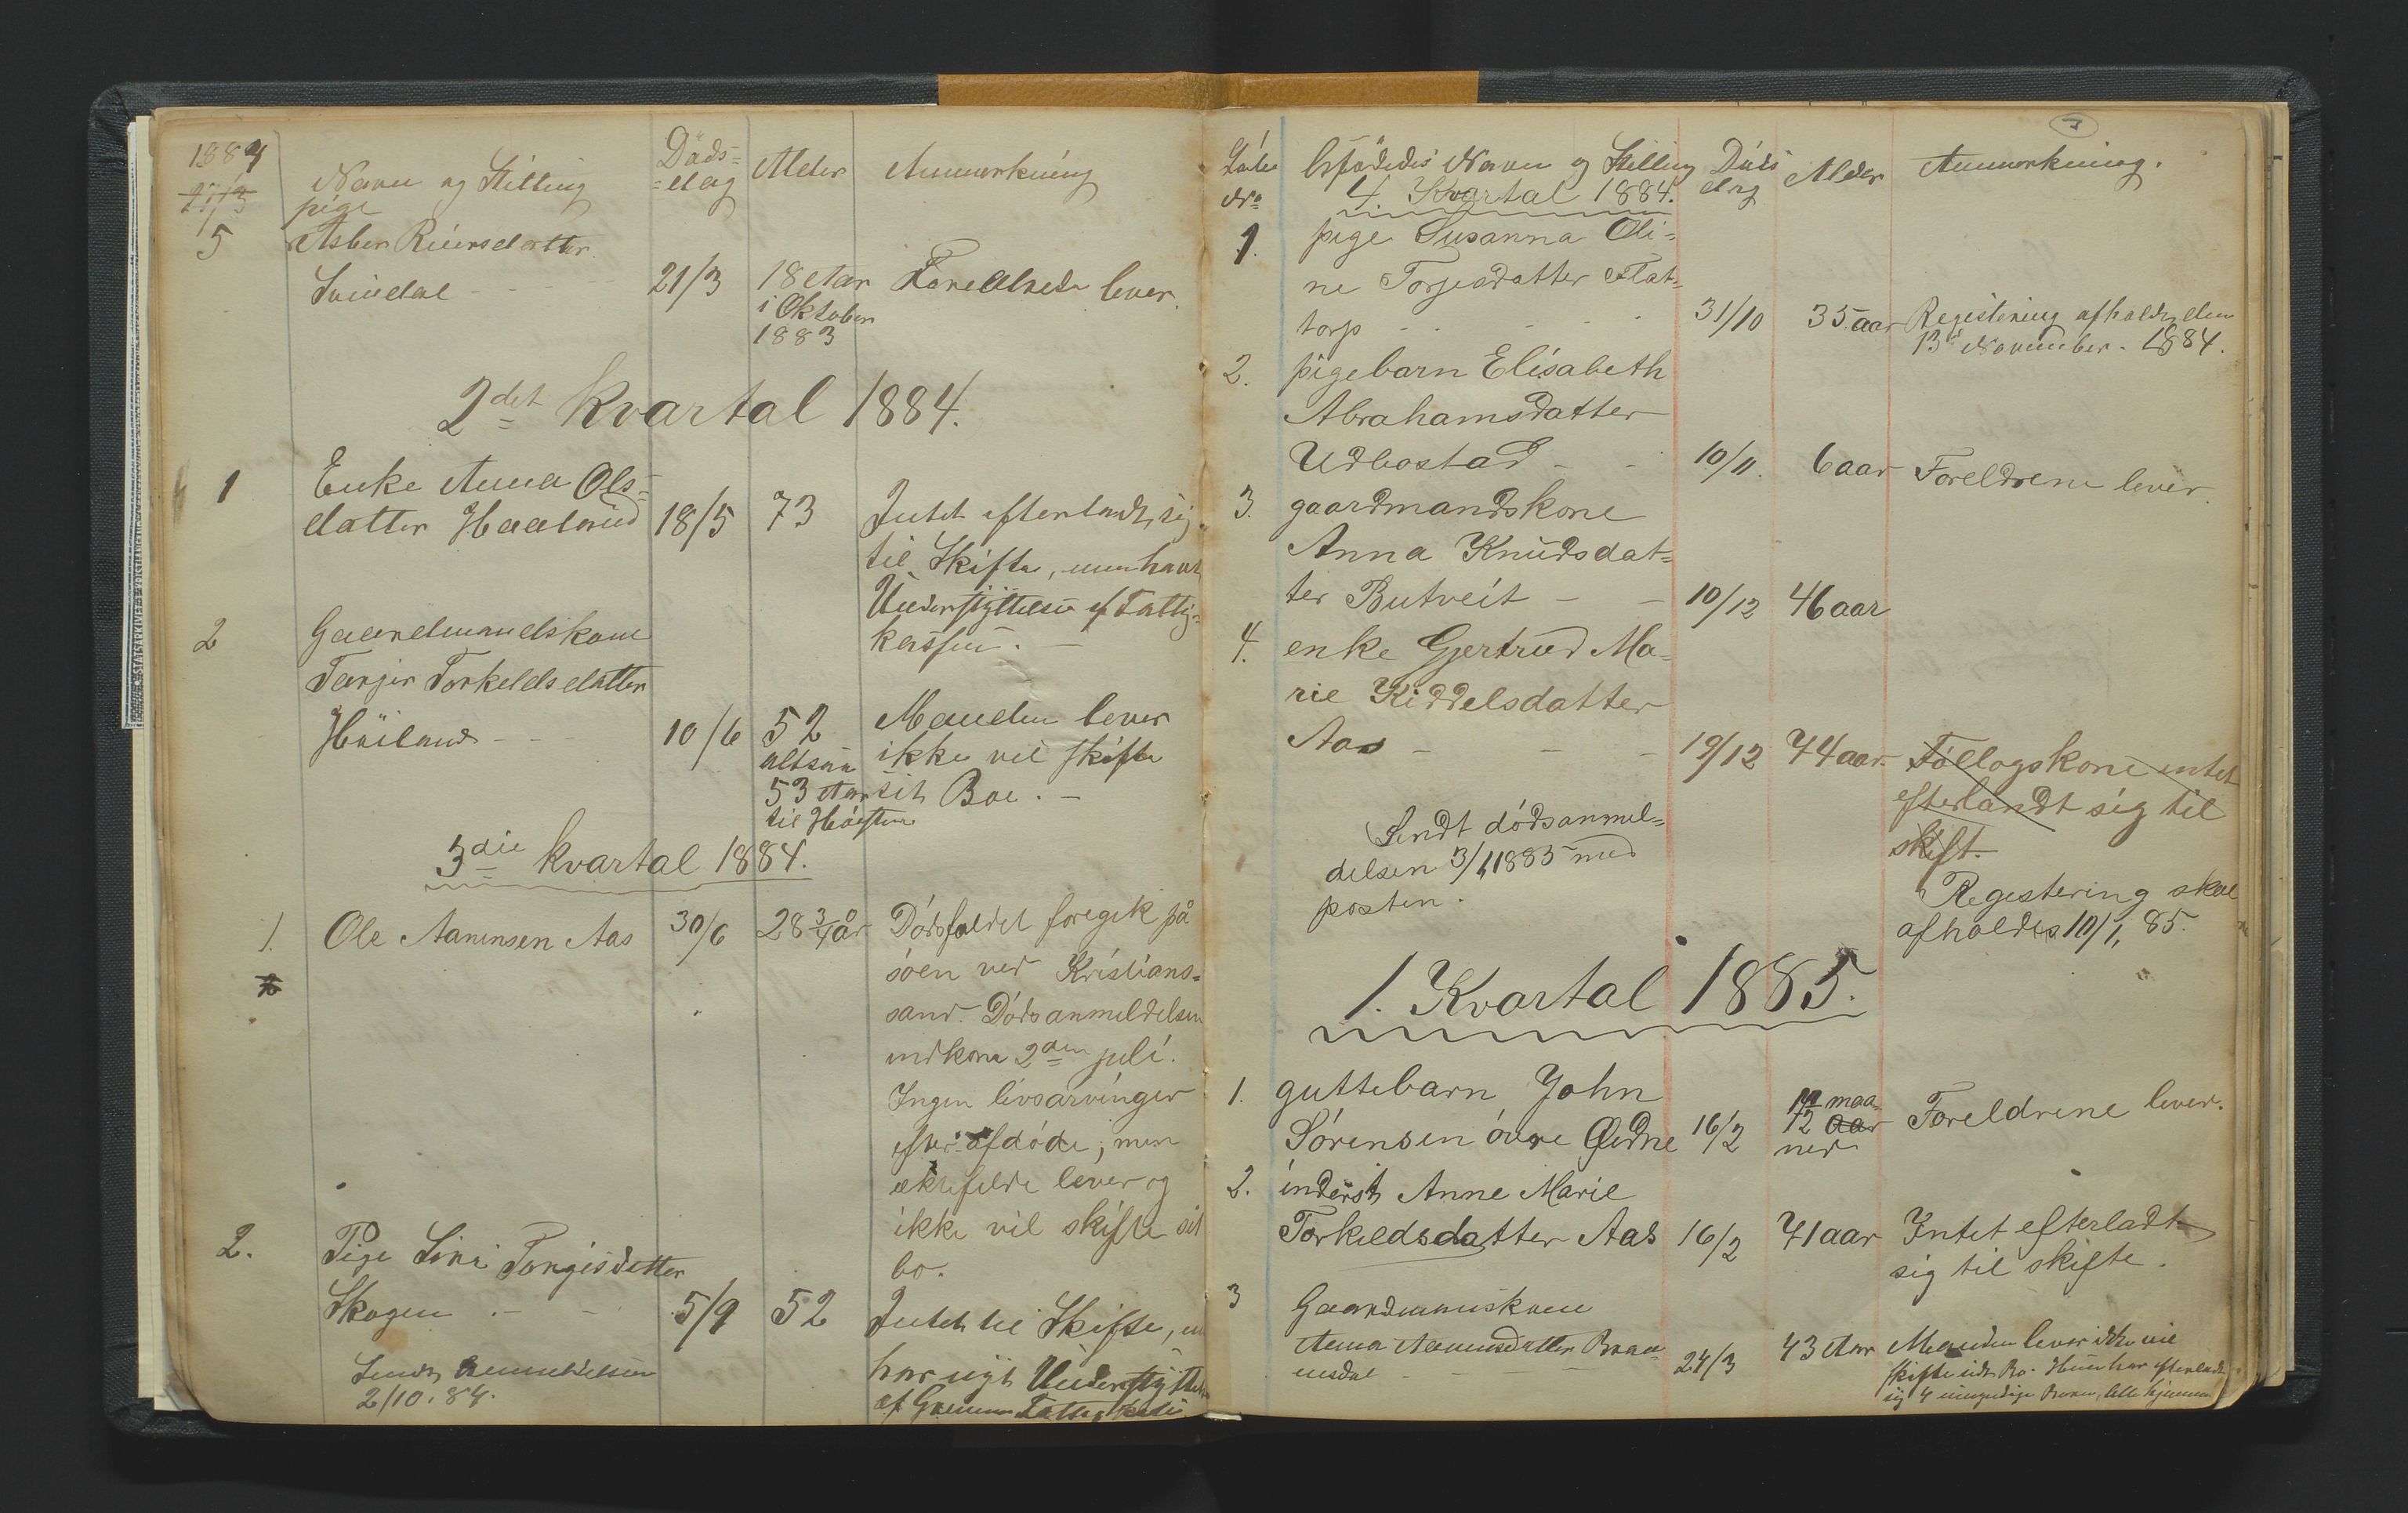 1884
21/3
Navn og Stilling
Döds=
=dag
Alder
Anmerkning
pige
5
Asber Reiersdatter
Svindal - - - -
21/3
18 Aar
i Oktober
1883
Foreldrede lever.
2det kvartal 1884.
1
Enke Anna Ols=
datter Haaland
18/5
73
Intet efterladt sig
til Skifte, men havt
Understyttelse af Fattig=
kassen. -
2
Gaardmandskone
Tarjer Torkeldsdatter
Höiland - - -
10/6
52
altsaa
53 Aar
til Hösten
Manden lever
ikke vil skifte
sit Boe. -
3die kvartal 1884.
1.
Ole Aanensen Aas
30/6
28 3/4 år
Dödsfaldet foregik på
söen ved Kristians=
sand. Dödsanmeldelsen
indkom 2den juli.
Ingen livsarvinger
efter afdöde, men
ektefelde lever og
ikke vil skifte sit
bo.
2.
Pige Siri Torgisdatter
Skogen . - -
5/9
52
Intet til Skifte,
har nyt Understyttelse
af Fattigkasse
Sendt Anmeldelsen
2/10.84.
7
Löbe
No
Afdödedes Navn og Stilling
Döds
dag
Alder
Anmerkning.
4. Kvartal 1884.
1.
pige Susanna Oli=
ne Torjesdatter Flat=
torp - - - -
31/10
35 aar
Registering afholdt den
13de November. 1884.
2.
pigebarn Elisabeth
Abrahamsdatter
Udbostad - -
10/11.
6 aar
Foreldrene lever.
3.
gaardmandskone
Anna Knudsdat=
ter Butveit - -
10/12
46 aar
4.
enke Gjertrud Ma=
rie Kiddelsdatter
Aas - - -
19/12
74 aar.
Föllogskone intet
efterlandt sig til
skift.
Regestering skal
afholdes 10/1, 85.
Sendt dödsanmel=
delsen 3/1 1885 med
posten.
1. Kvartal 1885.
1.
guttebarn John
Sörensen övre Öidne
16/2
12 aar
maa
neder
Foreldrene lever.
2.
inderst Anne Marie
Torkeldsdatter Aas
16/2
71 aar
Intet efterladt
sig til skifte.
3
Gaardmandskone
Anna Aanensdatter
24/3
43 Aar
Manden lever ikke vil
skifte sidt Bo. Hun har efterladt
sig 4 umyndige Börn, alle hjemme